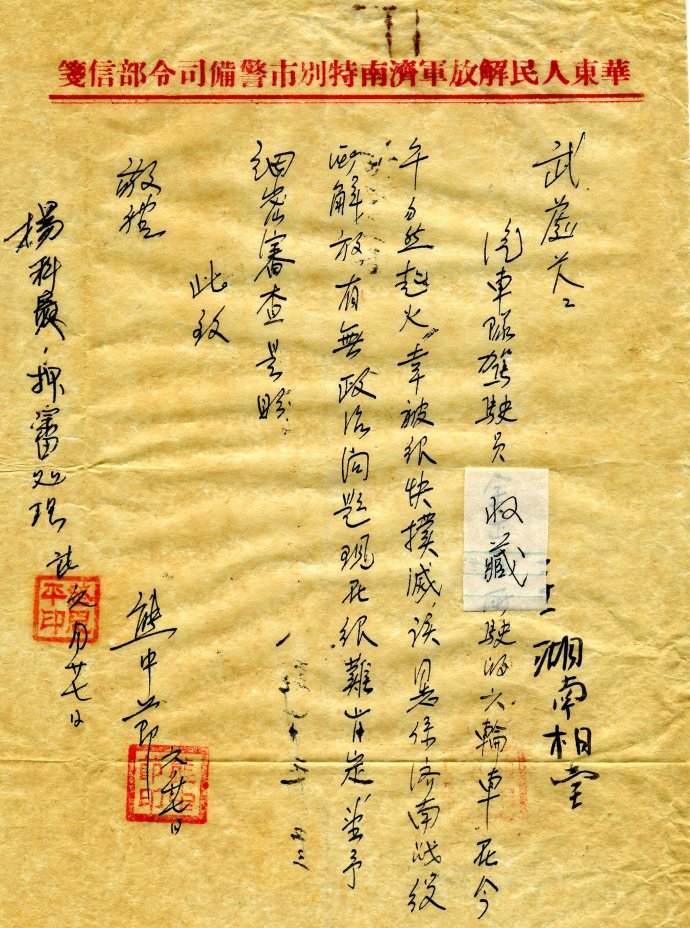 華東人民解放軍濟南特別市警備司令部信箋
武
汽車隊駕駛員 收藏 駛的六輪車在今
午忽然起火，幸被很快撲滅，該員係济南战役
所解放，有無政治问題現在很難肯定望予
細密審查是盼
此致
敬禮
熊中節 六廿七日
楊科長，押審处理
六月廿七日
湖南相堂